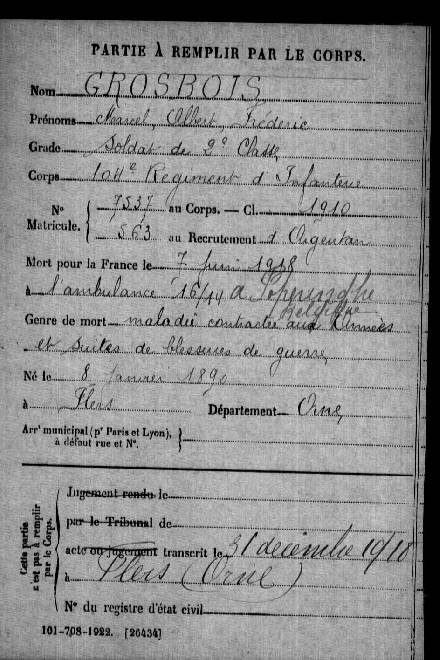 PARTIE À REMPLIR PAR LE CORPS.
Nom GROSBOIS
Prénoms Marcel, Albert, Fréderic
Grade Soldat de 2e Classe
Corps 104e Régiment d'Infanterie
N° Matricule. { 7537 au Corps. — Cl. 1910
563 au Recrutement d'Argentan
Mort pour la France le 7 Juin 1918
à l'ambulance 16/14 à Poperinghe
Belgique
Genre de mort maladie contractée aux Armées
et suites de blessures de guerre
Né le 8 Janvier 1890
à Flers Département Orne
Arrt municipal (pr Paris et Lyon), à défaut rue et N°. }
Cette partie n'est pas à remplir par le Corps. {
Jugement rendu le
par le Tribunal de
acte ou jugement transcrit le 31 décembre 1918
à Flers (Orne)
N° du registre d'état civil
101-708-1922. [26434]